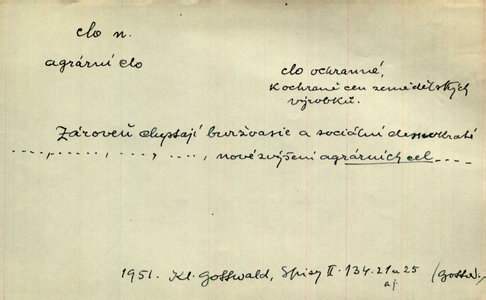 clo n.
agrární clo
clo ochranné,
k ochraně cen zemědělských
výrobků.
Zároveň chystají buržoasie a sociální demokraté
...., ......, ...., ...., nové zvýšení agrárních cel ....
1951. Kl. Gottwald, Spisy II. 134. 21 a 25
aj. (Gottw.)